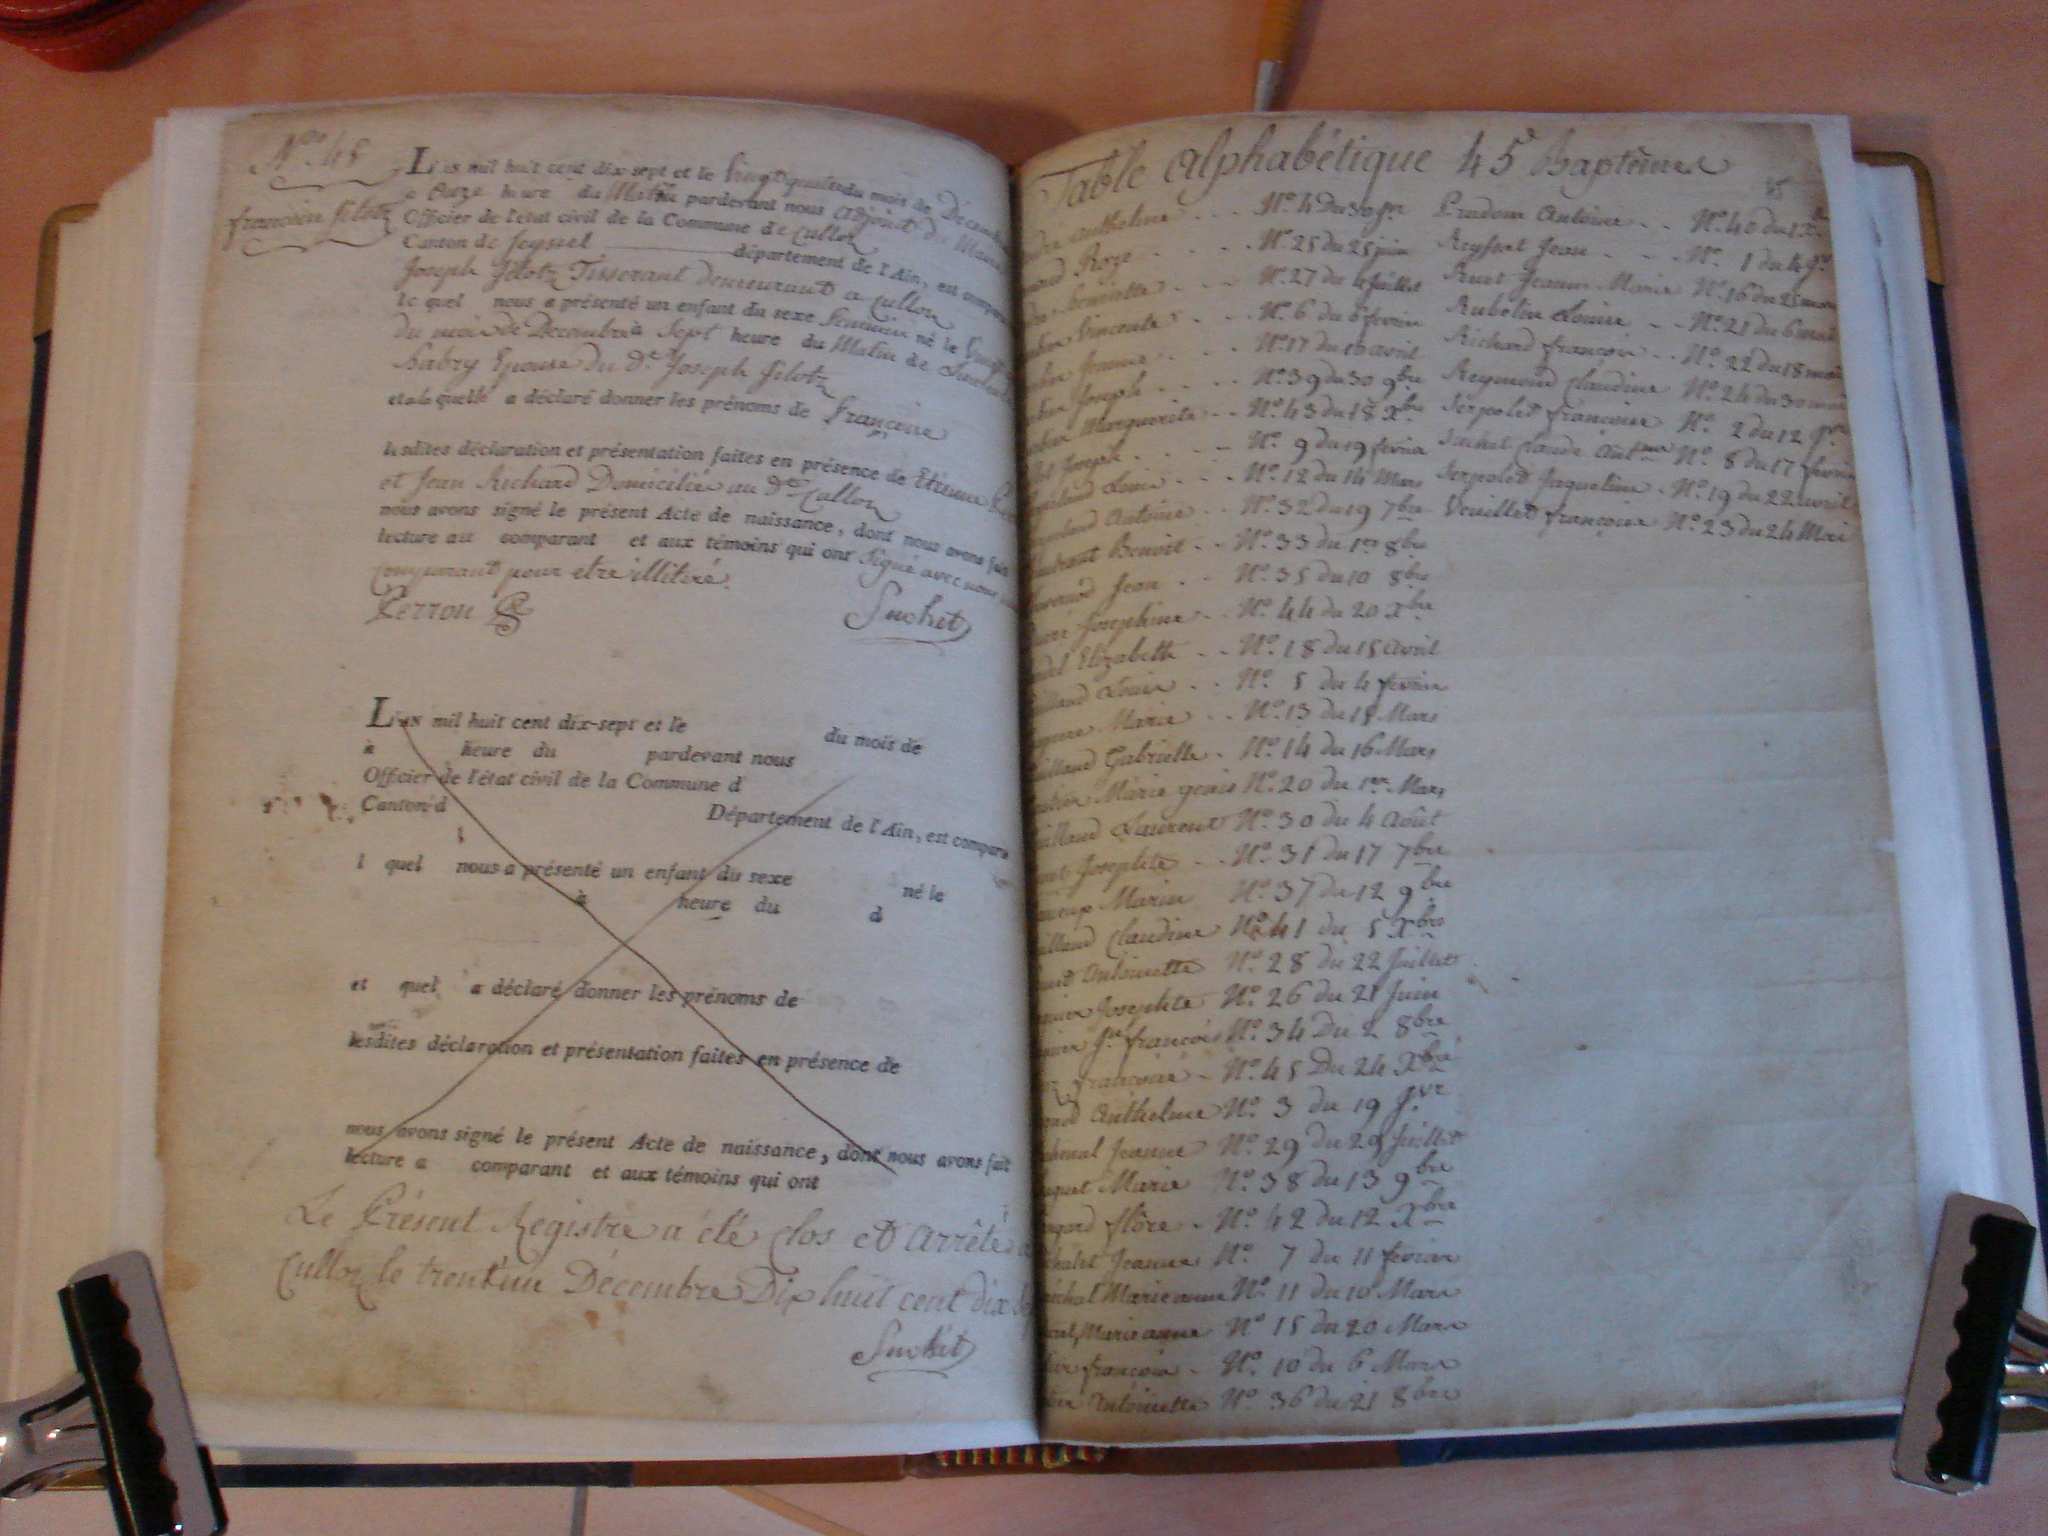 N.º 45
françoise Jelotz
L'an mil huit cent dix-sept et le Vingt quatre du mois de Décembre
a Onze heure du Matin pardevant nous adjoint du Maire
Officier de l'état civil de la Commune de Culloz
Canton de Seyssel département de l'Ain, est comparu
Joseph Jelotz Tisserant demeurant a Culloz
le quel nous a présenté un enfant du sexe feminin né le
du mois de Décembre à Sept heure du Matin de
habry Epouse du dt Joseph Jelotz
et a déclaré donner les prénoms de Françoise
lesdites déclaration et présentation faites en présence de Etienne
et Jean Richard Domiciliés au dt Culloz
nous avons signé le présent Acte de naissance, dont nous avons fait
lecture au comparant et aux témoins qui ont Signé avec nous
comparant pour etre illitiré.
Perron Suchet
L'an mil huit cent dix-sept et le du mois de
à heure du pardevant nous
Officier de l'état civil de la Commune d
Canton d Département de l'Ain, est compara
l quel nous a présenté un enfant du sexe né le
à heure du d
et quel a déclaré donner les prénoms de
lesdites déclaration et présentation faites en présence de
nous avons signé le présent Acte de naissance, dont nous avons fait
lecture a comparant et aux témoins qui ont
Le Présent Registre a été Clos et Arrêté a
Culloz le trent'un Décembre Dix huit cent dix
Suchet
Table Alphabétique 45 Baptêmes
Anthelme N.º 4 du 30 jer
Roze N.º 25 du 25 juin
henriette N.º 27 du 4 juillet
Vincente N.º 6 du 6 fevrier
Jeanne N.º 17 du 10 avril
Joseph N.º 39 du 30 9bre
Marguerite N.º 43 du 18 Xbre
Joseph N.º 9 du 19 fevrier
Louis N.º 12 du 14 Mars
Antoine N.º 32 du 19 7bre
Benoit N.º 33 du 1er 8bre
Jean N.º 35 du 10 8bre
Josephine N.º 44 du 20 Xbre
Elizabeth N.º 18 du 15 avril
Louise N.º 5 du 4 fevrier
Marie N.º 13 du 15 Mars
Gabrielle N.º 14 du 16 Mars
Marie N.º 20 du 1er Mars
Laurent N.º 30 du 4 Août
Josephte N.º 31 du 17 7bre
Marie N.º 37 du 12 9bre
Claudine N.º 41 du 5 Xbre
Antoinette N.º 28 du 22 Juillet
Josephte N.º 26 du 21 Juin
françois N.º 34 Du 2 8bre
françoise N.º 45 Du 24 Xbre
Anthelme N.º 3 du 19 jvr
Jeanne N.º 29 du 29 Juillet
Marie N.º 38 du 13 9bre
flôre N.º 42 du 12 Xbre
Jeanne N.º 7 du 11 fevrier
Marie anne N.º 11 du 10 Mars
Marie anne N.º 15 du 20 Mars
françois N.º 10 du 6 Mars
Antoinette N.º 36 du 21 8bre
Prudom Antoine N.º 40 du 1 X
Jean N.º 1 du 4 jer
Jeanne Marie N.º 16 du 25 mars
Rubelin Louise N.º 21 du 6
Richard françois N.º 22 du 18
Reymond Claudine N.º 24 du 30
Serpolet françoise N.º 2 du 12 jer
Suchet Claude N.º 8 du 17 fevrier
Serpolet Jaqueline N.º 19 du 22 avril
Veuillet françoise N.º 23 du 24 Mai